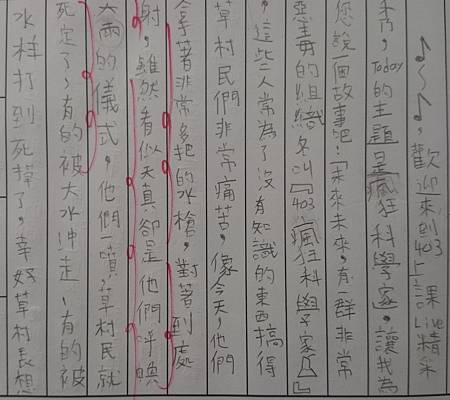 ♪～♪，歡迎來到403上課Live精采
秀，Today的主題是瘋狂科學家，讓我為
您說一個故事吧！「未來未來，有一群非常
惡毒的組織名叫『403瘋狂科學家』
，這些人常為了沒有知識的東西搞得
草村民們非常痛苦，像今天，他們
拿著非常多把的水槍，對著到處
射，雖然看似天真卻是他們呼喚
大雨的儀式，他們一噴草村民就
死定了，有的被大水沖走、有的被
水柱打到死掉了，幸好草村長想